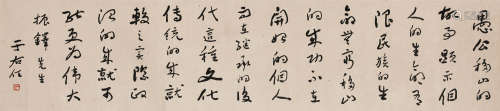 愚公移山的
故事顯示個
人的生命有
限民族的生
命無窮移山
的成功不在
開始的個人
而在繼承的後
代這種文化
傳統的成就
較之實際政
治的成就可
能更為偉大
振鐸先生
于右任